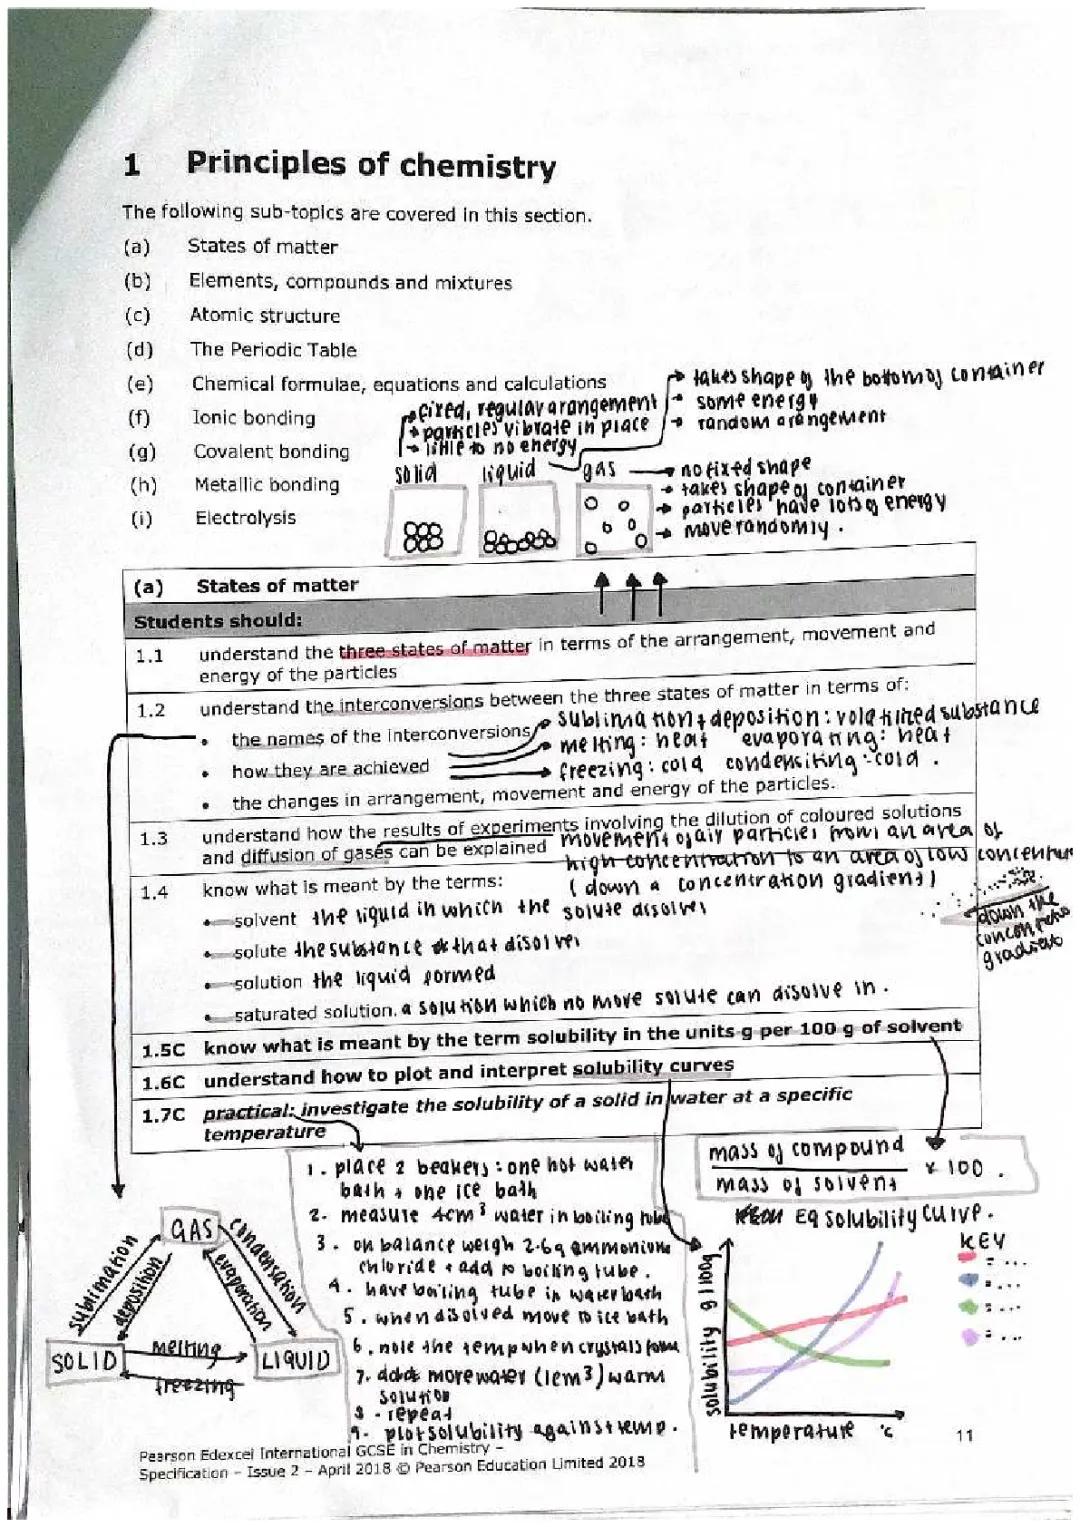 1 Principles of chemistry
The following sub-topics are covered in this section.
(a) States of matter
(b) Elements, compounds and mixtures
(c) Atomic structure
(d) The Periodic Table
(e) Chemical formulae, equations and calculations
(f) Ionic bonding
(g) Covalent bonding
(h) Metallic bonding
(i) Electrolysis
takes shape of the bottom of container
some energy
random arangement
fixed, regular arangement
particles vibrate in place
little to no energy
solid liquid gas
no fixed shape
takes shape of container
particles have lots of energy
move randomly.
(a) States of matter
Students should:
1.1 understand the three states of matter in terms of the arrangement, movement and
energy of the particles
1.2 understand the interconversions between the three states of matter in terms of:
• the names of the interconversions
• how they are achieved
• the changes in arrangement, movement and energy of the particles.
sublimation + deposition: volatilized substance
melting: heat evaporating: heat
freezing: cold condensiting: cold.
1.3 understand how the results of experiments involving the dilution of coloured solutions
and diffusion of gases can be explained
movement of air particles from an area of
high concentration to an area of low
(down a concentration gradient)
down the
gradient
1.4 know what is meant by the terms:
• solvent the liquid in which the solute disolves
• solute the substance that disolves
• solution the liquid formed
• saturated solution. a solution which no more solute can disolve in.
1.5C know what is meant by the term solubility in the units g per 100 g of solvent
1.6C understand how to plot and interpret solubility curves
1.7C practical: investigate the solubility of a solid in water at a specific
temperature
mass of compound
mass of solvent
x 100.
1. place 2 beakers: one hot water
bath + one ice bath
2. measure 4cm³ water in boiling tube
3. on balance weigh 2.6g ammonium
chloride + add to boiling tube.
4. have boiling tube in waterbath
5. when disolved move to ice bath
6. note the temp when crystals form
7. add more water (1cm³) warm
solution
8. repeat
9. plot solubility against temp.
GAS
SOLID
LIQUID
sublimation
deposition
condensation
evaporation
melting
freezing
Eg solubility curve.
KEY
= ...
= ...
= ...
= ...
solubility g/100g
temperature °c
Pearson Edexcel International GCSE in Chemistry –
Specification – Issue 2 – April 2018 © Pearson Education Limited 2018
11